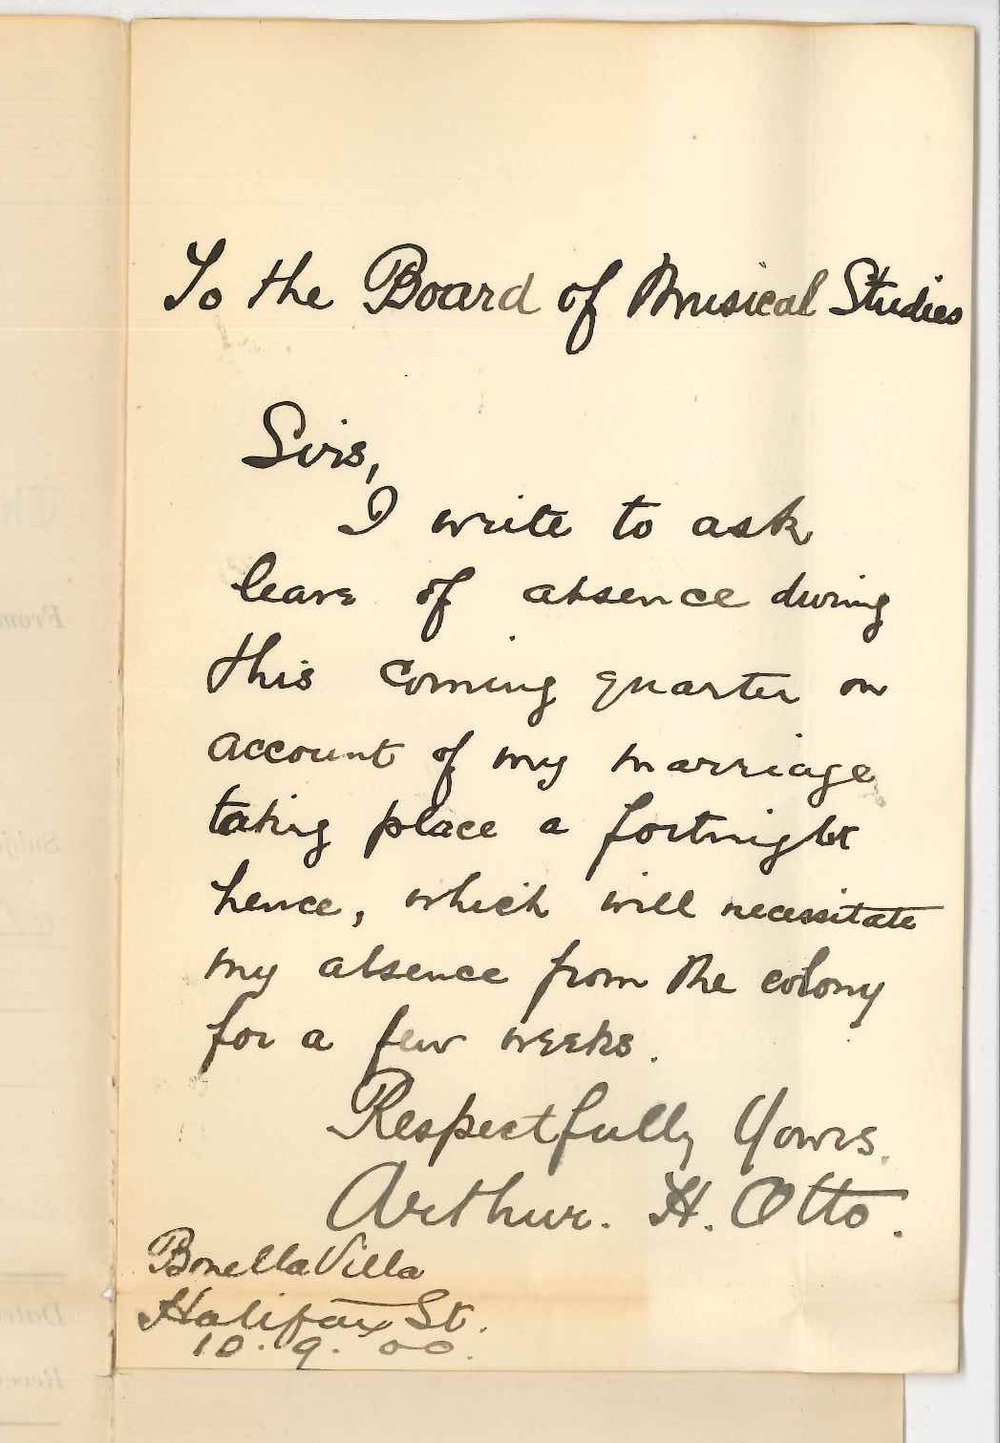 To the Board of Musical Studies
Sirs,
I write to ask
leave of absence during
this coming quarter on
account of my marriage
taking place a fortnight
hence, which will necessitate
my absence from the colony
for a few weeks.
Respectfully Yours.
Arthur. H. Otto.
Bonella Villa
Halifax St.
10. 9. 00.